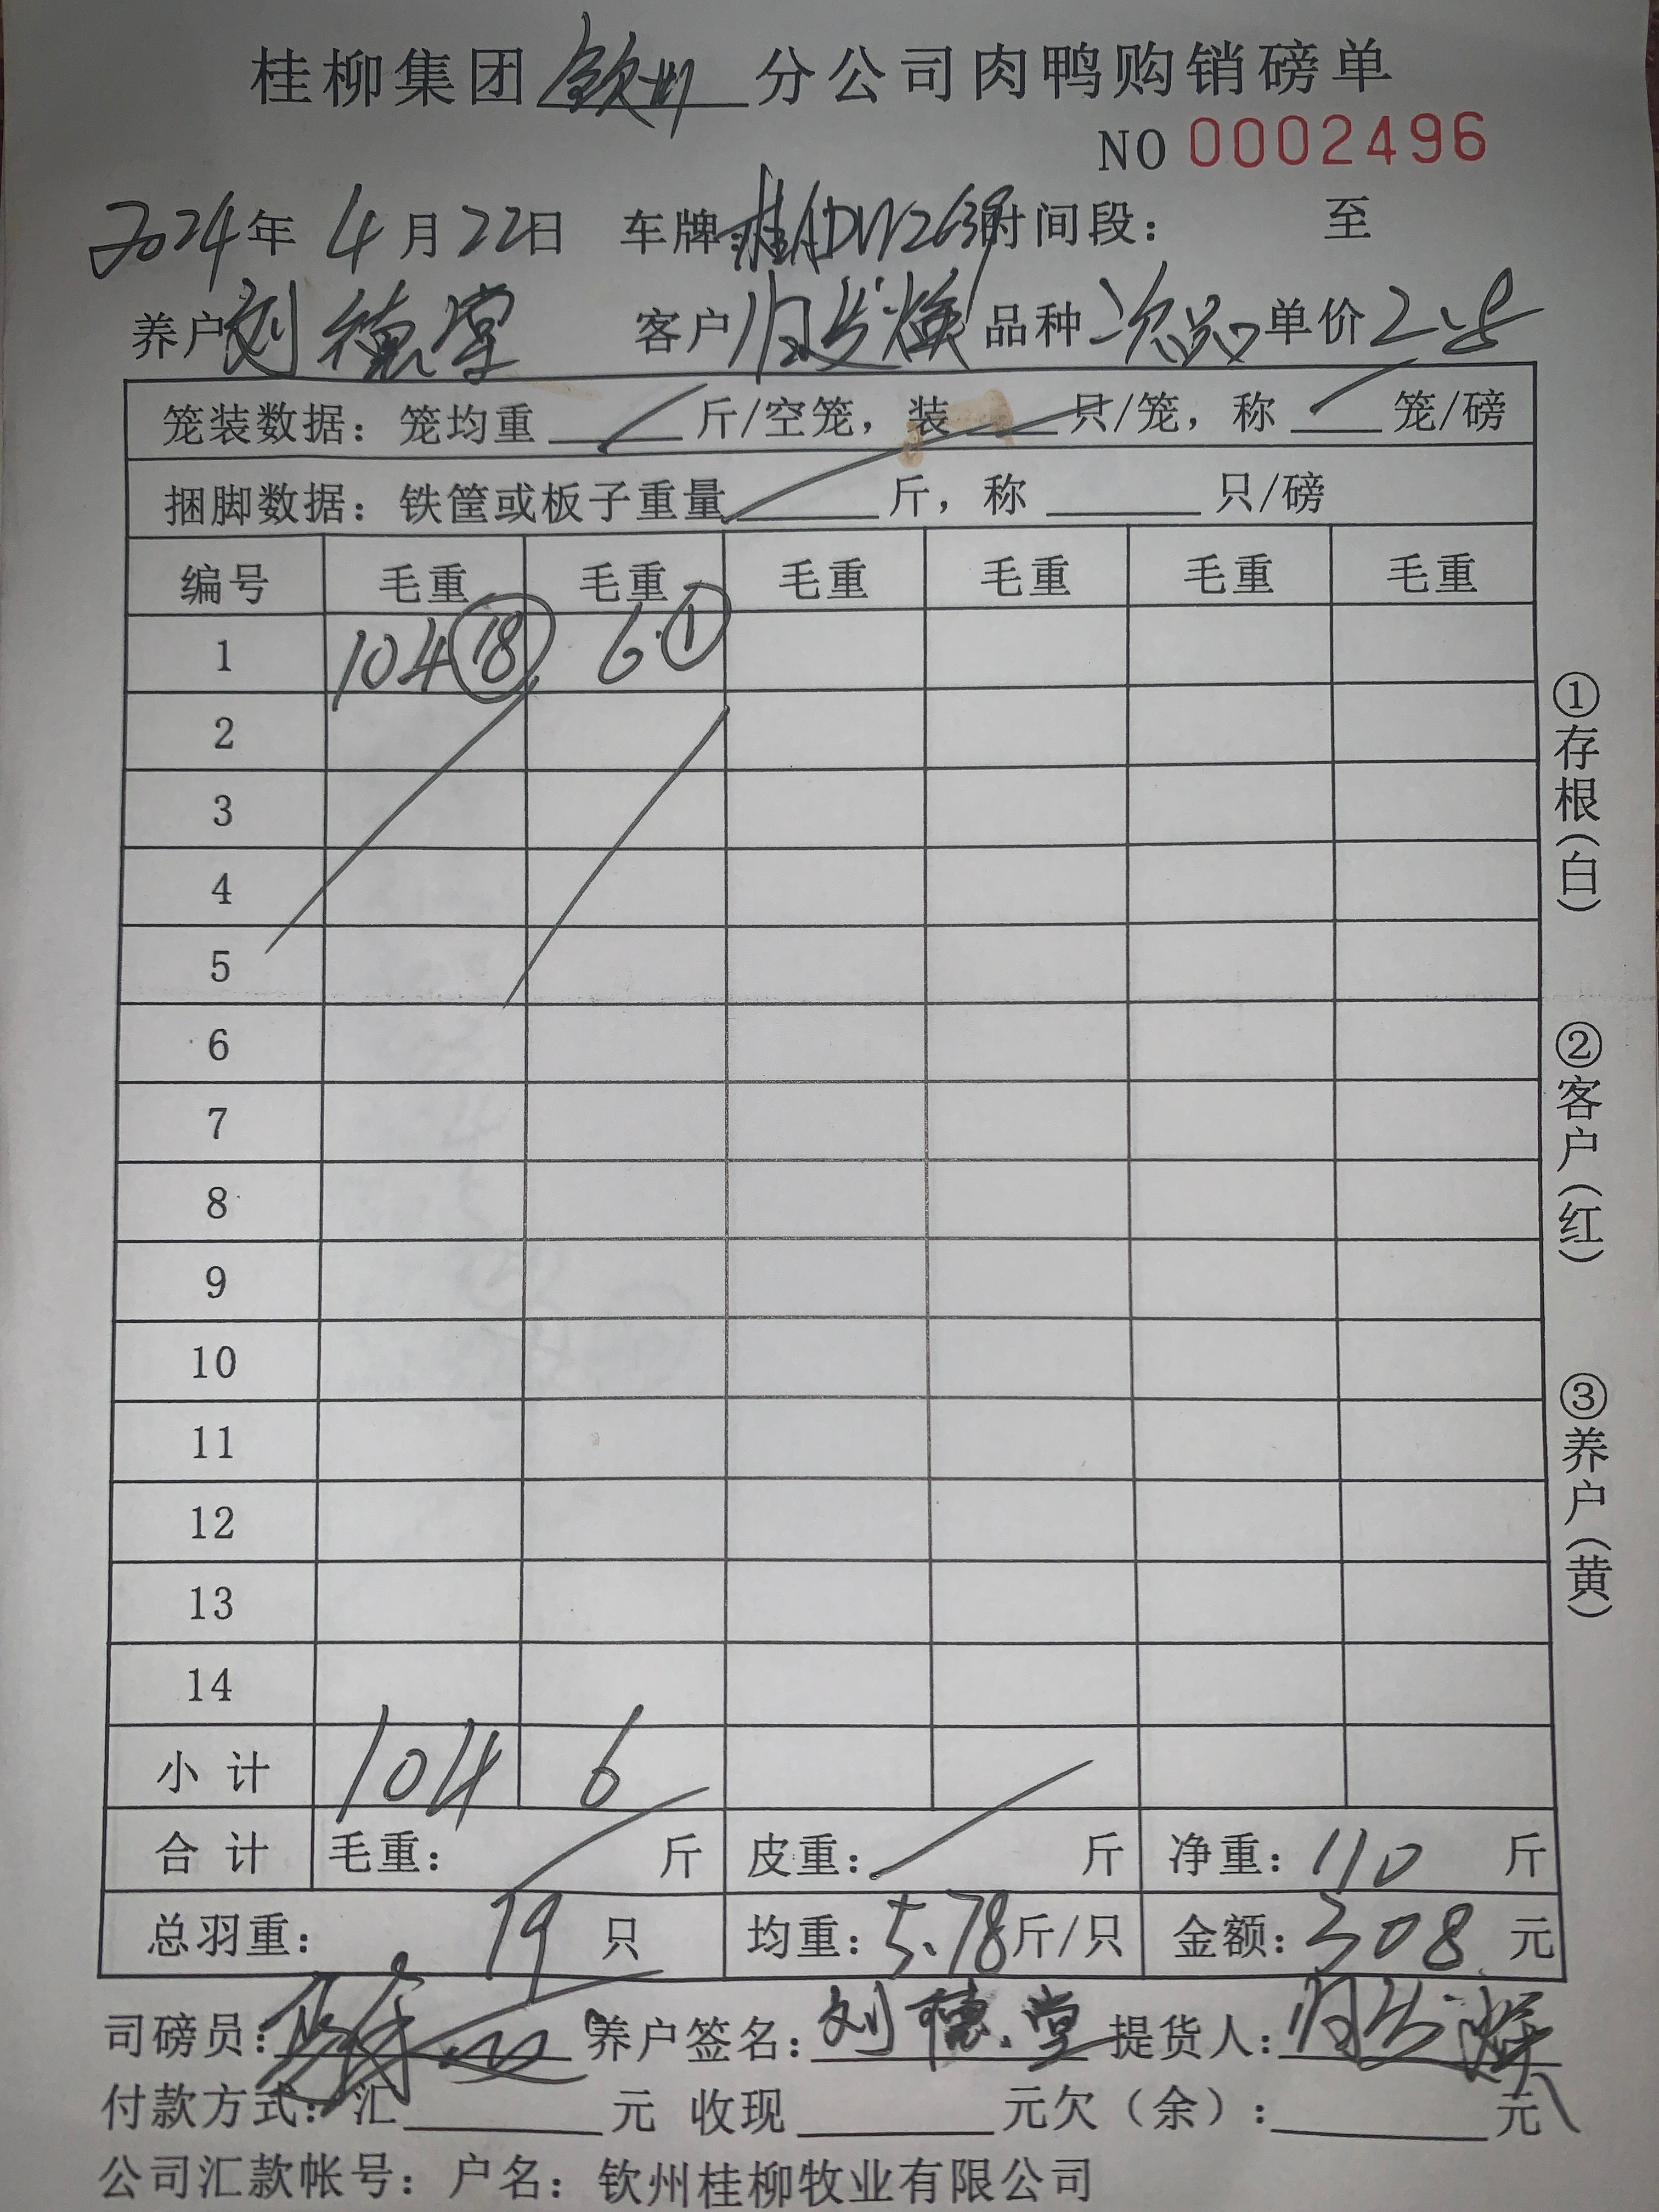 桂柳集团钦州分公司肉鸭购销磅单
NO 0002496
2024年 4月22日 车牌:桂ADW263 时间段: 至
养户刘德堂 客户 品种次品 单价2.8
笼装数据: 笼均重 斤/空笼, 装 只/笼, 称 笼/磅
捆脚数据: 铁筐或板子重量 斤, 称 只/磅
编号 毛重 毛重 毛重 毛重 毛重 毛重
1 104 18 6 1
2
3
4
5
6
7
8
9
10
11
12
13
14
小计 104 6
合计 毛重: 斤 皮重: 斤 净重: 110 斤
总羽重: 19 只 均重: 5.78斤/只 金额: 308 元
司磅员: 养户签名: 刘德堂 提货人:
付款方式: 汇 元 收现 元欠(余): 元
公司汇款帐号: 户名: 钦州桂柳牧业有限公司
①存根(白)
②客户(红)
③养户(黄)